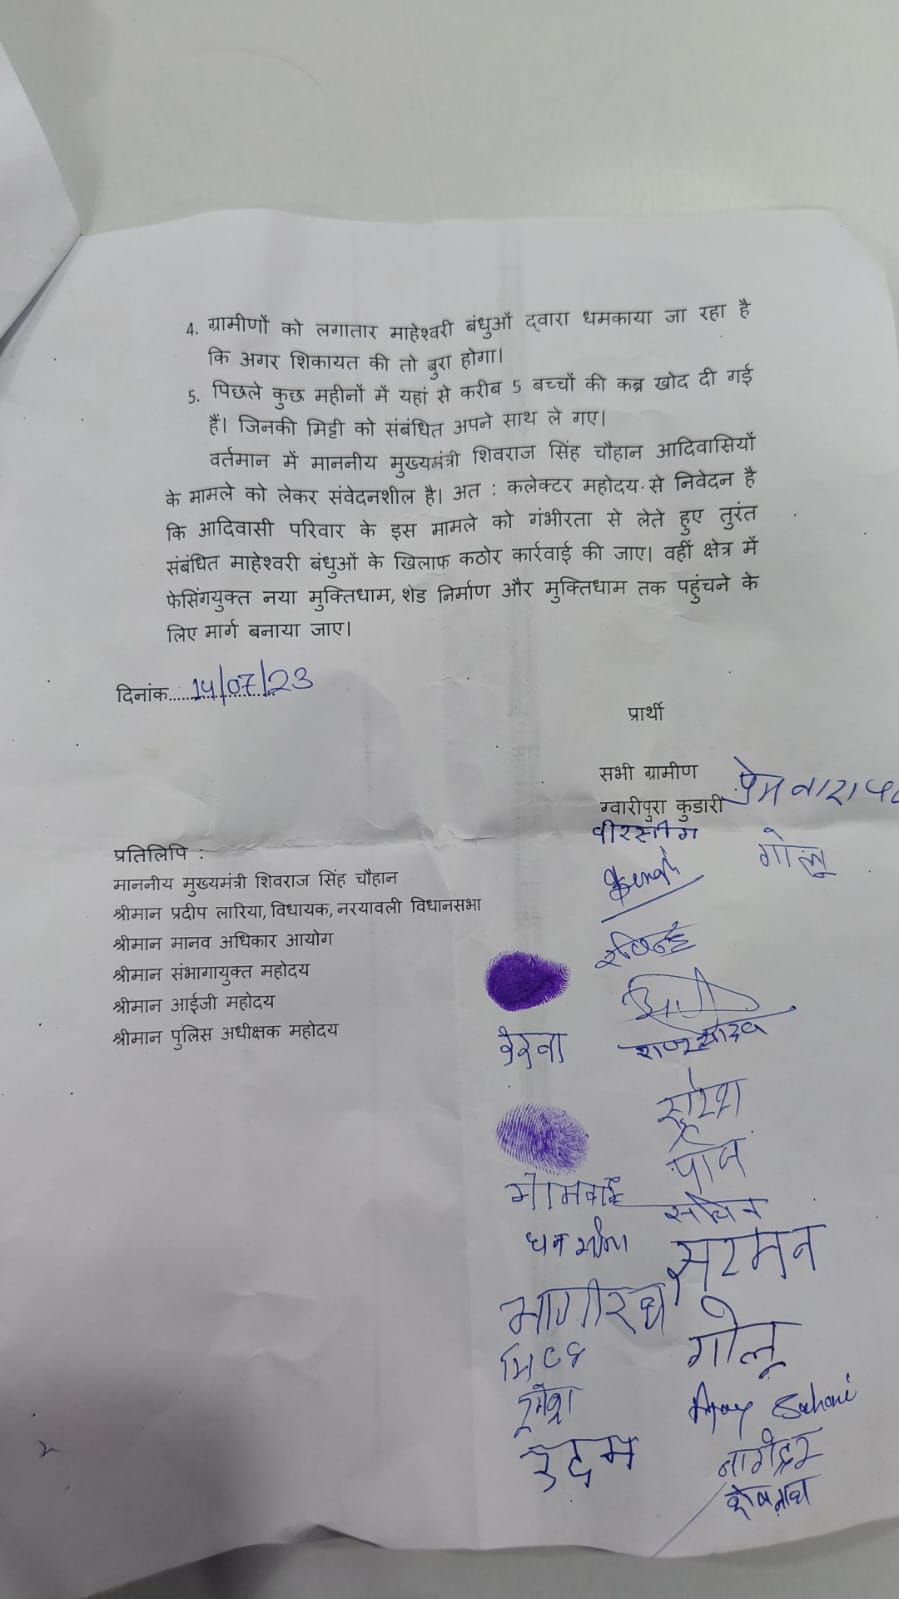 4. ग्रामीणों को लगातार माहेश्वरी बंधुओं द्वारा धमकाया जा रहा है
कि अगर शिकायत की तो बुरा होगा।
5. पिछले कुछ महीनों में यहां से करीब 5 बच्चों की कब्र खोद दी गई
हैं। जिनकी मिट्टी को संबंधित अपने साथ ले गए।
वर्तमान में माननीय मुख्यमंत्री शिवराज सिंह चौहान आदिवासियों
के मामले को लेकर संवेदनशील है। अत : कलेक्टर महोदय से निवेदन है
कि आदिवासी परिवार के इस मामले को गंभीरता से लेते हुए तुरंत
संबंधित माहेश्वरी बंधुओं के खिलाफ कठोर कार्रवाई की जाए। वहीं क्षेत्र में
फेसिंगयुक्त नया मुक्तिधाम, शेड निर्माण और मुक्तिधाम तक पहुंचने के
लिए मार्ग बनाया जाए।
दिनांक..: 14/07/23
प्रार्थी
सभी ग्रामीण
ग्वारीपुरा कुडारी
गोलू
प्रतिलिपि :
माननीय मुख्यमंत्री शिवराज सिंह चौहान
श्रीमान प्रदीप लारिया, विधायक, नरयावली विधानसभा
श्रीमान मानव अधिकार आयोग
श्रीमान संभागायुक्त महोदय
श्रीमान आईजी महोदय
श्रीमान पुलिस अधीक्षक महोदय
सुरेश
सचिन
सरमन
भागीरथ
गोलू